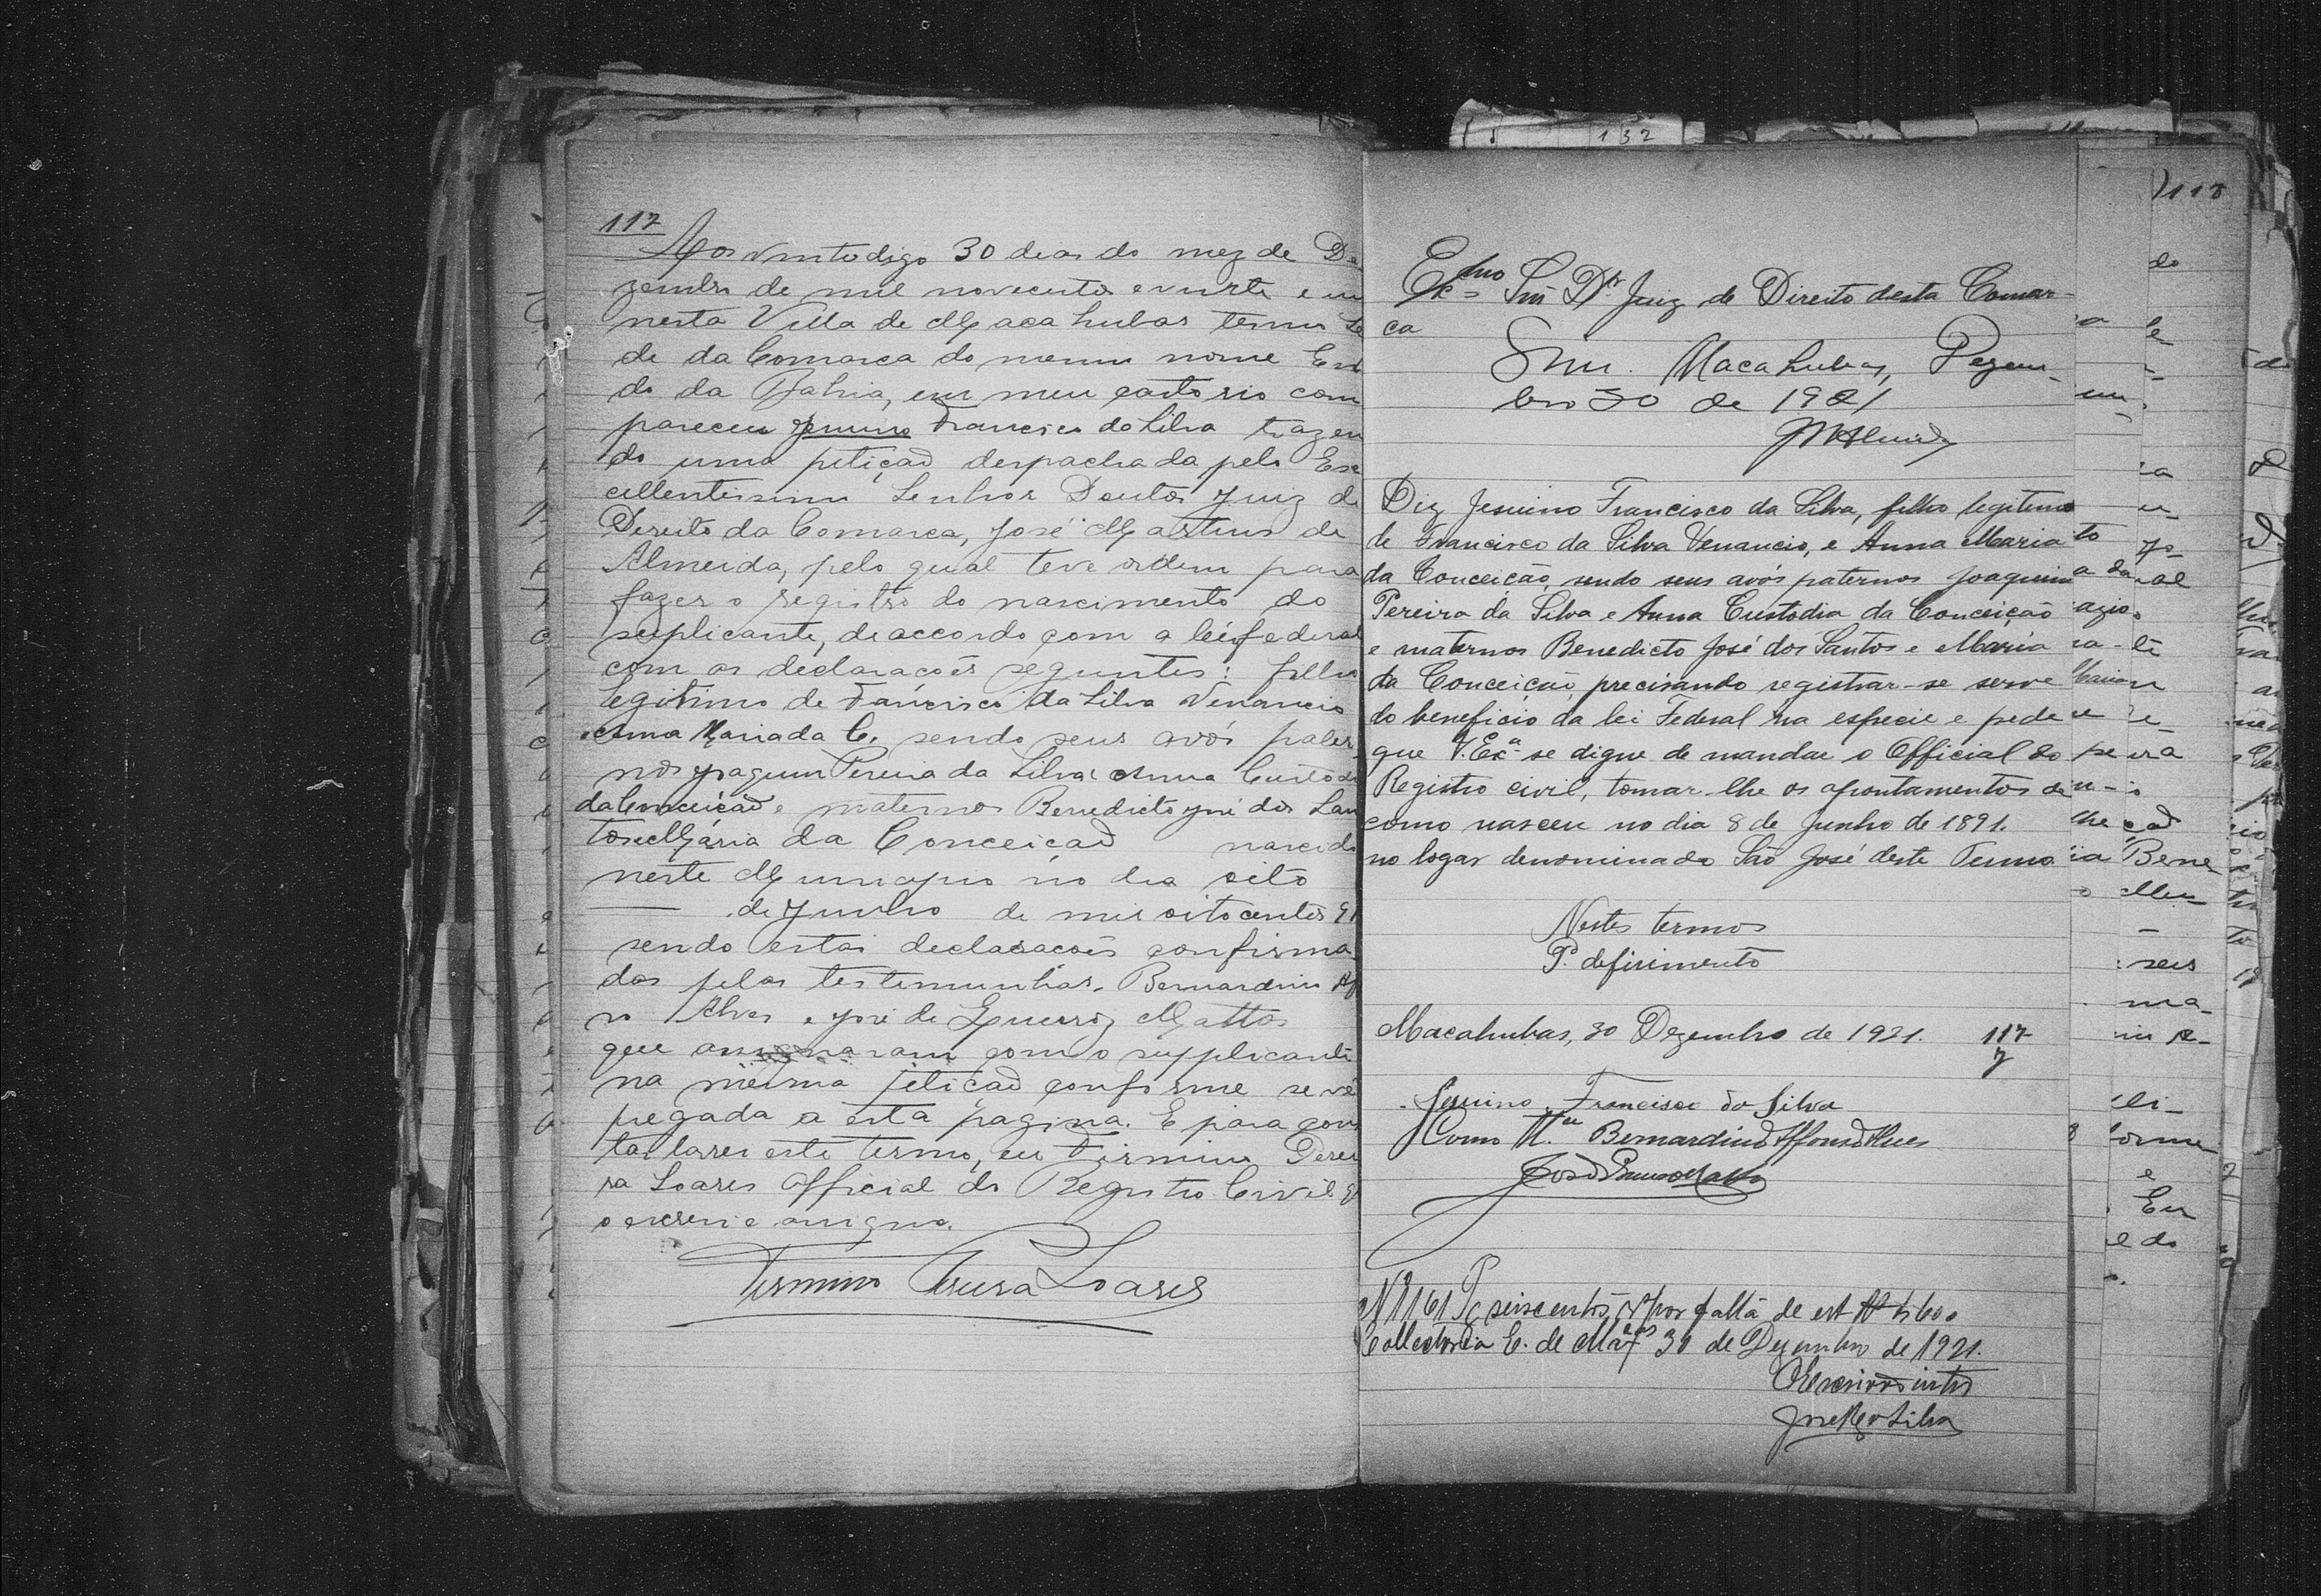 132
117
Aos vinte digo 30 dias do mez de De
zembro de mil novecentos e vinte e um
nesta Villa de Macahubas termo Se
de da Comarca do mesmo nome Esta
do da Bahia, em meu cartorio com
pareceu Jesuino Francisco da Silva trazen
do uma petiçaõ despachada pelo Exc
cellentissimo Senhor Doutor Juiz de
Direito da Comarca, José Martins de
Almeida, pelo qual teve ordem para
fazer o registro do nascimento do
supplicante, de accordo com a lei federal
com as declaracoẽs seguintes: filho
legitimo de Francisco da Silva Venancio
e Anna Maria da C. sendo seus avós pater
nos Joaquim Pereira da Silva e Anna Custodia
da Conceiçaõ e maternos Benedicto José dos San
tos e Maria da Conceiçaõ nascido
neste Municipio no dia oito
de Junho de mil oitocentos 91
sendo estas declaracoẽs confirma
das pelas testemunhas. Bernardino Aff
so Alves e José de Mattos
que assignaram com o supplicante
na mesma petiçaõ conforme se vê
pregada a esta pagina. E para cons
tar lavrei este termo, eu Firmino Perei
ra Soares Official do Registro Civil q
o escrevi e assigno.
Firmino Pereira Soares
118
Exmo Snr. Dr. Juiz de Direito desta Comar-
ca
Sim. Macahubas, Dezem-
bro 30 de 1921
JMAlmeida
Diz Jesuino Francisco da Silva, filho legitimo
de Francisco da Silva Venancio, e Anna Maria
da Conceição, sendo seus avós paternos Joaquim
Pereira da Silva e Anna Custodia da Conceição
e maternos Benedicto José dos Santos e Maria
da Conceição, precisando registrar-se serve
do beneficio da lei Federal na especie e pede
que V. Exa. se digne de mandar o Official do
Registro civil, tomar-lhe os apontamentos de
como nasceu no dia 8 de Junho de 1891.
no logar denominado São José deste Termo
Nestes termos
P. deferimento
Macahubas, 30 Dezembro de 1921. 117
Jesuino Francisco da Silva
Como tt.as Bernardino Affonso Alves
José Mattos
Nº 161 Pg seiscentos rs por falta de est. $600
Collectoria E. de 30 de Dezembro de 1921.
O Escrivaõ
Silva